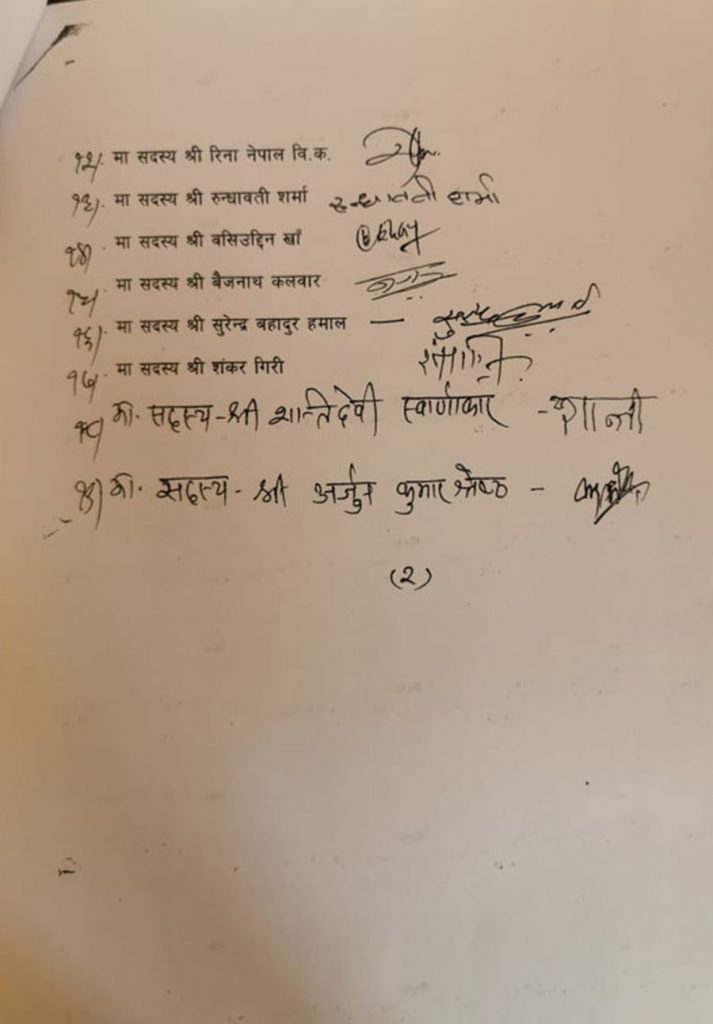 १२) मा सदस्य श्री रिना नेपाल वि.क.
१३) मा सदस्य श्री रुन्धावती शर्मा रुन्धावती शर्मा
१४) मा सदस्य श्री वसिउद्दिन खाँ
१५) मा सदस्य श्री बैजनाथ कलवार
१६) मा सदस्य श्री सुरेन्द्र बहादुर हमाल —
१७) मा सदस्य श्री शंकर गिरी
१८) मा. सदस्य-श्री शान्तिदेवी स्वार्णाकार - शान्ती
१९) मा. सदस्य - श्री अर्जुन कुमार श्रेष्ठ -
(२)